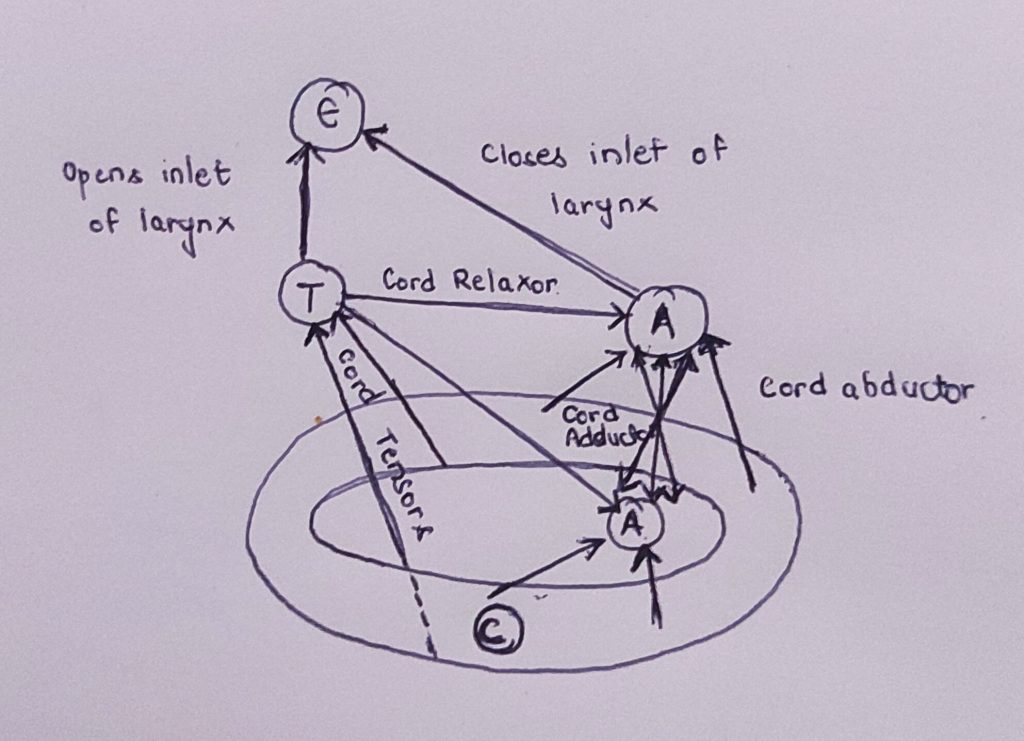 E
Opens inlet
of larynx
Closes inlet of
larynx
T
Cord Relaxor
A
Cord
Tensors
Cord
Adductor
Cord abductor
A
C